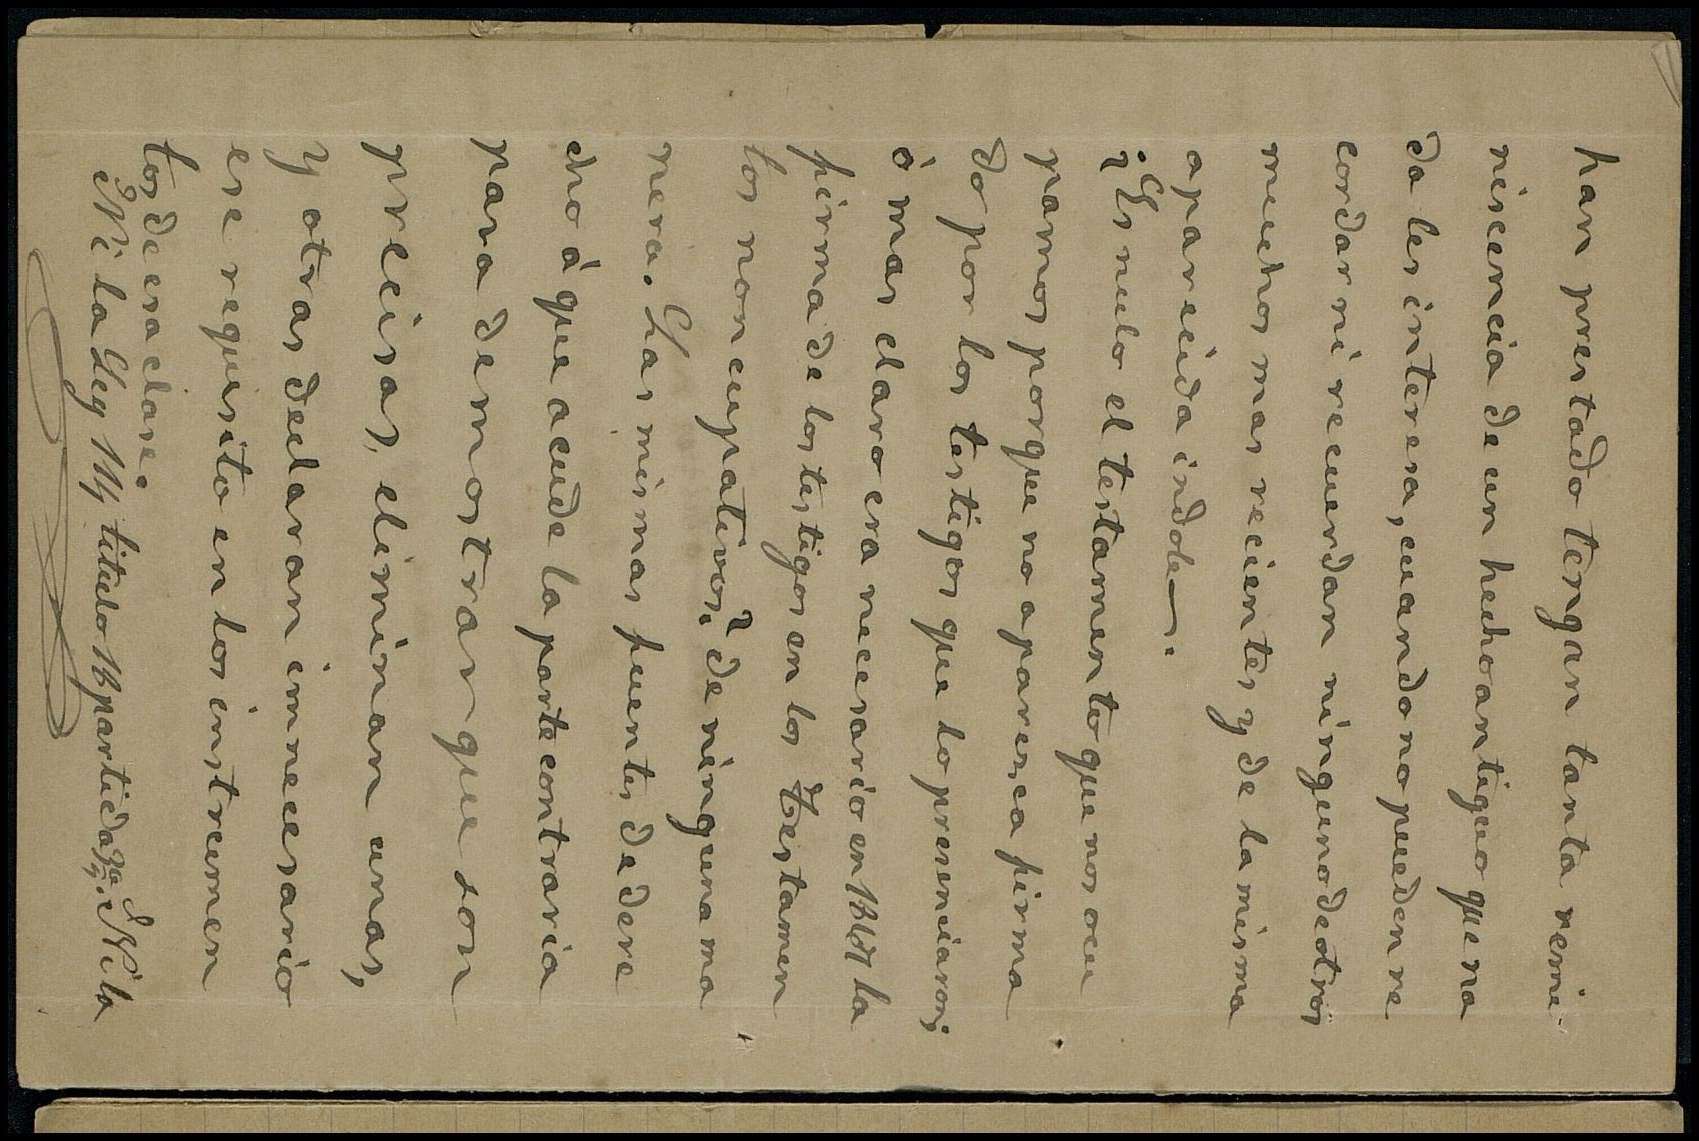 han prestado tengan tanta remi-
niscencia de un hecho antiguo que na
da les interesa, cuando no pueden re
cordar ni recuerdan ninguno de otros
muchos mas recientes y de la misma
aparecida indole.
¿Es nulo el testamento que nos ocu
pamos porque no aparesca firma
do por los testigos que lo presenciaron;
ó mas claro era necesario en la
firma de los testigos en los Testamen
tos noncupativos? de ninguna ma
nera. Las mismas fuentes de dere
cho á que acude la parte contraria
para demostrar que son
precisas, eliminan unas,
y otras declaran innecesario
ese requisito en los instrumen
tos de esa clase.
Ni la Ley titulo 18 partida 3ª Ni la